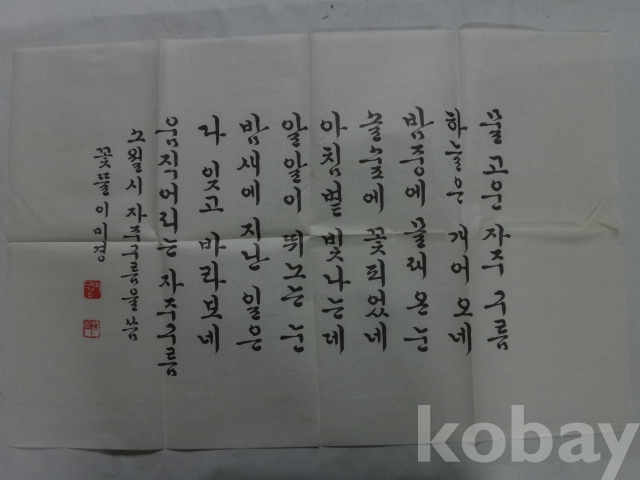 물 고운 자주 구름
하늘은 개어 오네
밤중에 몰래 온 눈
솔숲에 꽃피었네
아침볕 빛나는데
알알이 뛰노는 눈
밤새에 지난 일은
다 잊고 바라보네
움직어리는 자주구름
소월시 자주구름을 씀
꽃뜰 이미경
kobay